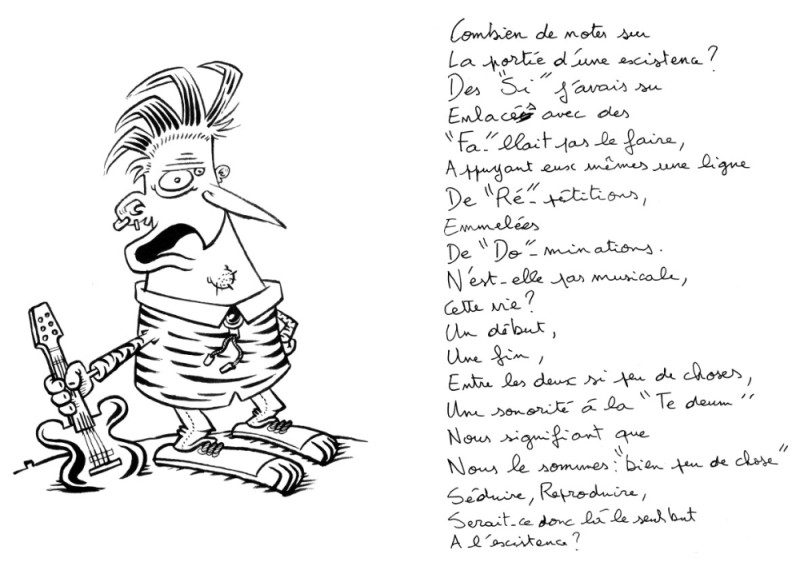 Combien de notes sur
La portée d'une existence?
Des "Si" j'avais su
Enlacés avec des
"Fa-"llait pas le faire,
Appuyant eux mêmes une ligne
De "Ré"-pétitions,
Emmelées
De "Do"-minations.
N'est-elle pas musicale,
Cette vie?
Un début,
Une fin,
Entre les deux si peu de choses,
Une sonorité à la "Te deum"
Nous signifiant que
Nous le sommes: "bien peu de chose"
Séduire, Reproduire,
Serait-ce donc là le seul but
A l'existence?